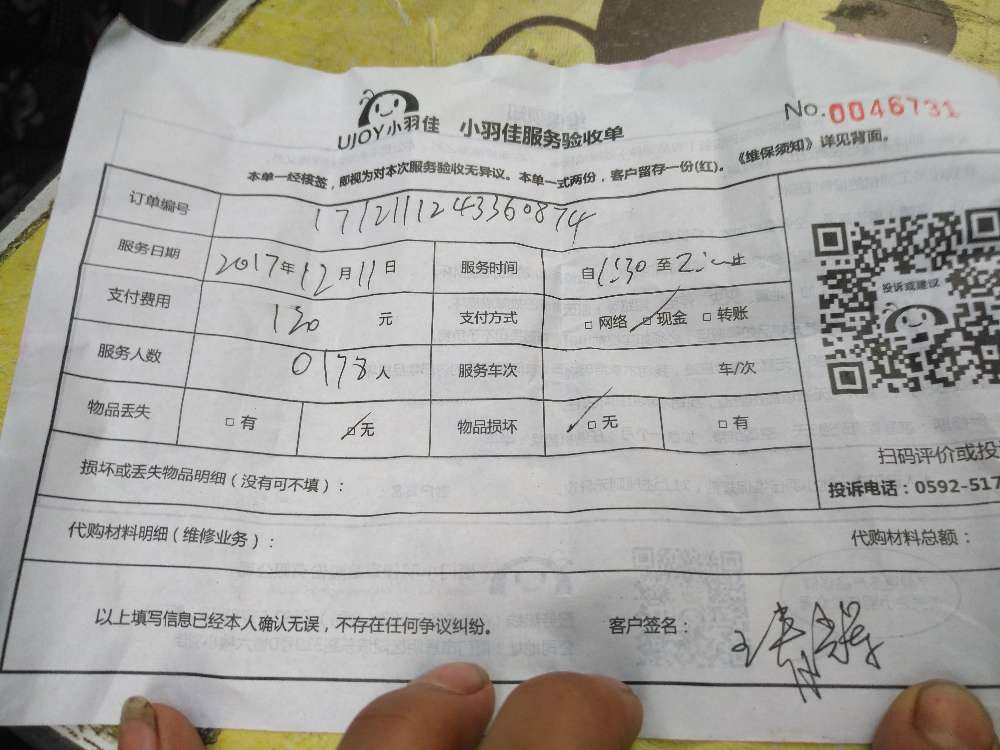 UJOY小羽佳 小羽佳服务验收单
No.0046731
本单一经核签，即视为对本次服务验收无异议。本单一式两份，客户留存一份(红)。《维保须知》详见背面。
订单编号 1712111243360874
服务日期 2017年12月11日 服务时间 自1530至 止
支付费用 130元 支付方式 □网络 □现金 □转账
服务人数 0178人 服务车次 车/次
物品丢失 □有 □无 物品损坏 □无 □有
投诉或建议
扫码评价或投
投诉电话：0592-517
损坏或丢失物品明细（没有可不填）：
代购材料明细（维修业务）： 代购材料总额：
以上填写信息已经本人确认无误，不存在任何争议纠纷。 客户签名：